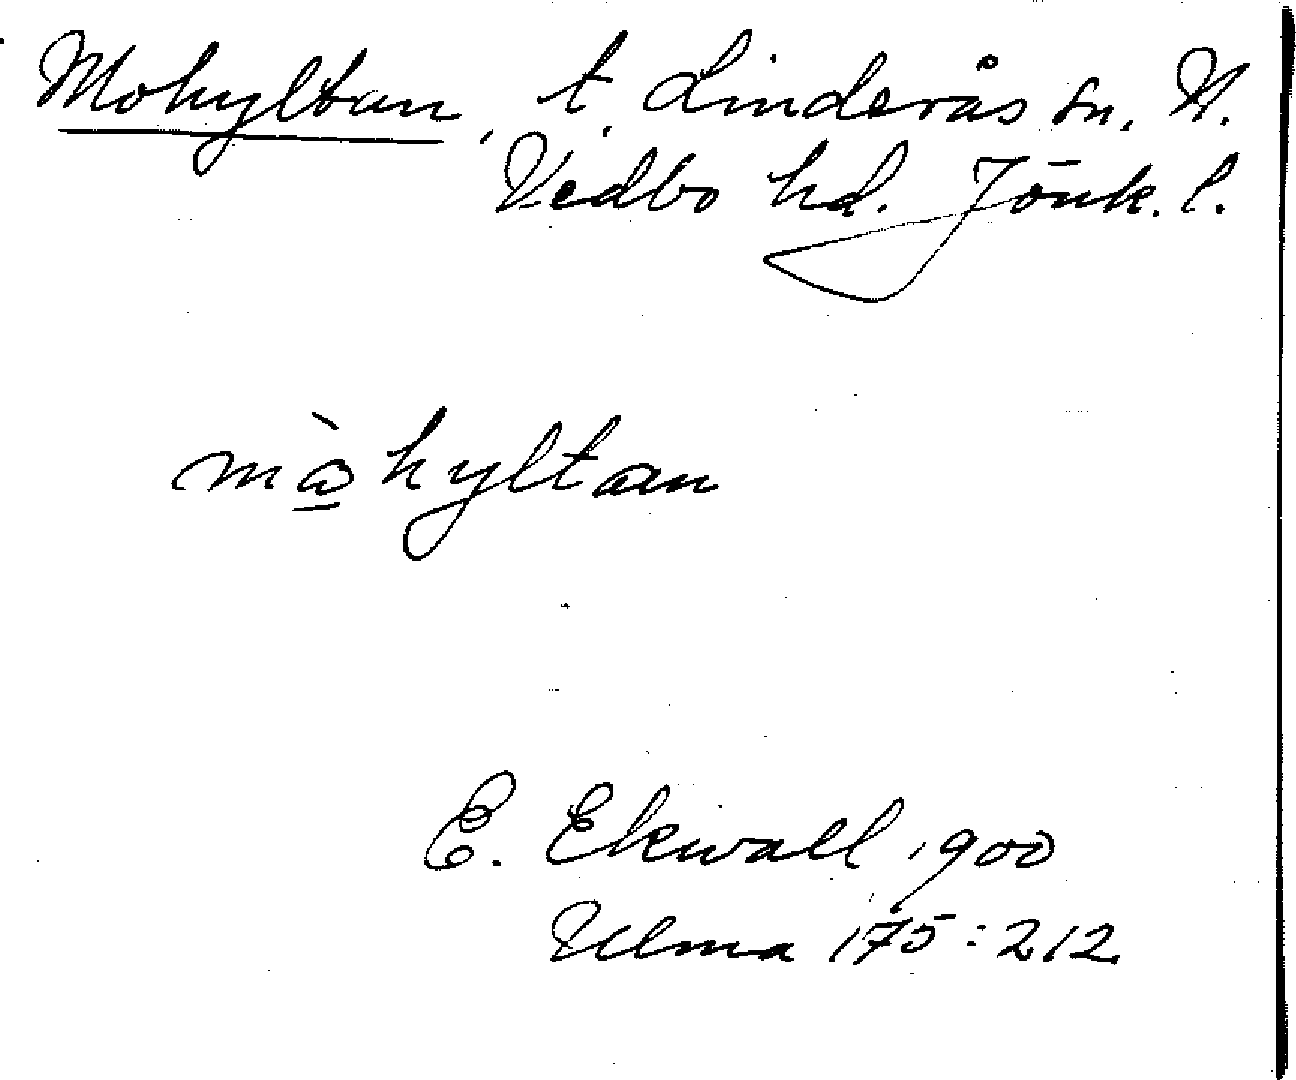 Mohyltan, t. Linderås sn. N.
Vedbo hd. Jönk. l.
mὼ̲hyltan
E. Ekwall 1900
Ulma 175:212